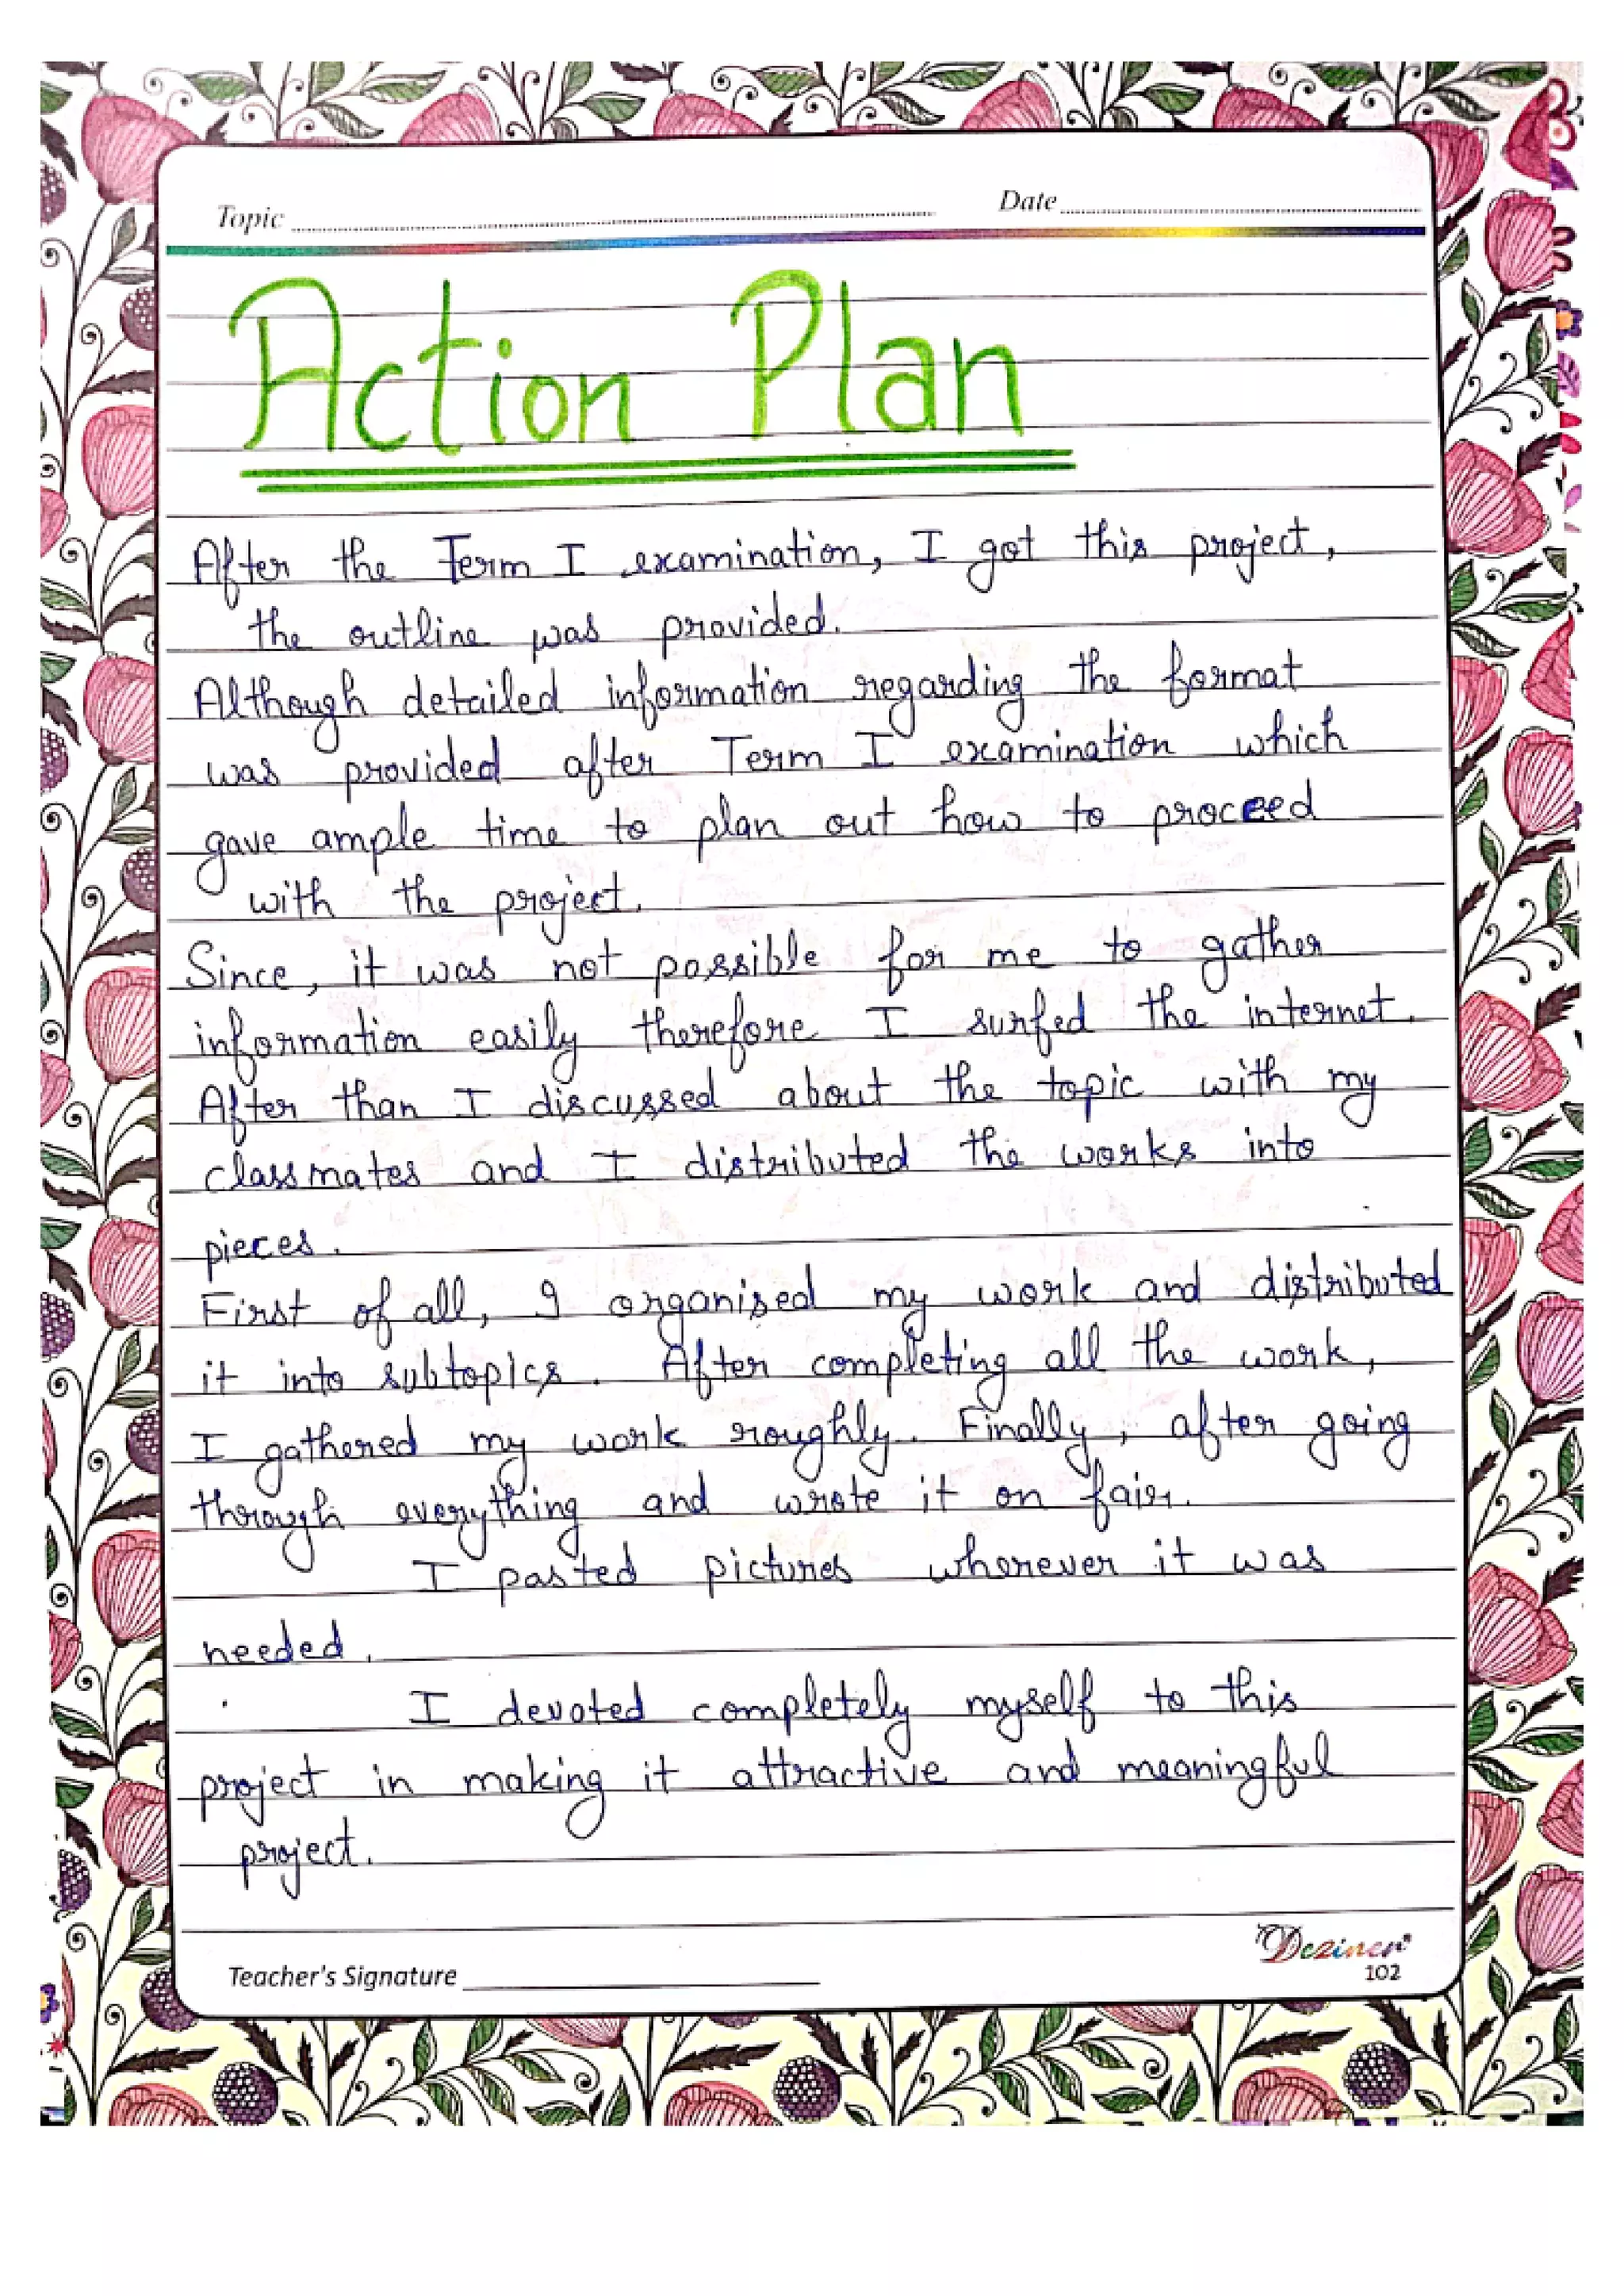 Topic
Date
Action Plan
After the Term I examination, I got this project,
the outline was provided.
Although detailed information regarding the format
was provided after Term I examination which
gave ample time to plan out how to proceed
with the project.
Since, it was not possible for me to gather
information easily therefore I surfed the internet.
After than I discussed about the topic with my
classmates and I distributed the works into
pieces.
First of all, I organised my work and distributed
it into subtopics. After completing all the work,
I gathered my work roughly. Finally, after going
through everything and wrote it on fair.
I pasted pictures wherever it was
needed.
I devoted completely myself to this
project in making it attractive and meaningful
project.
Teacher's Signature
Deziner
102